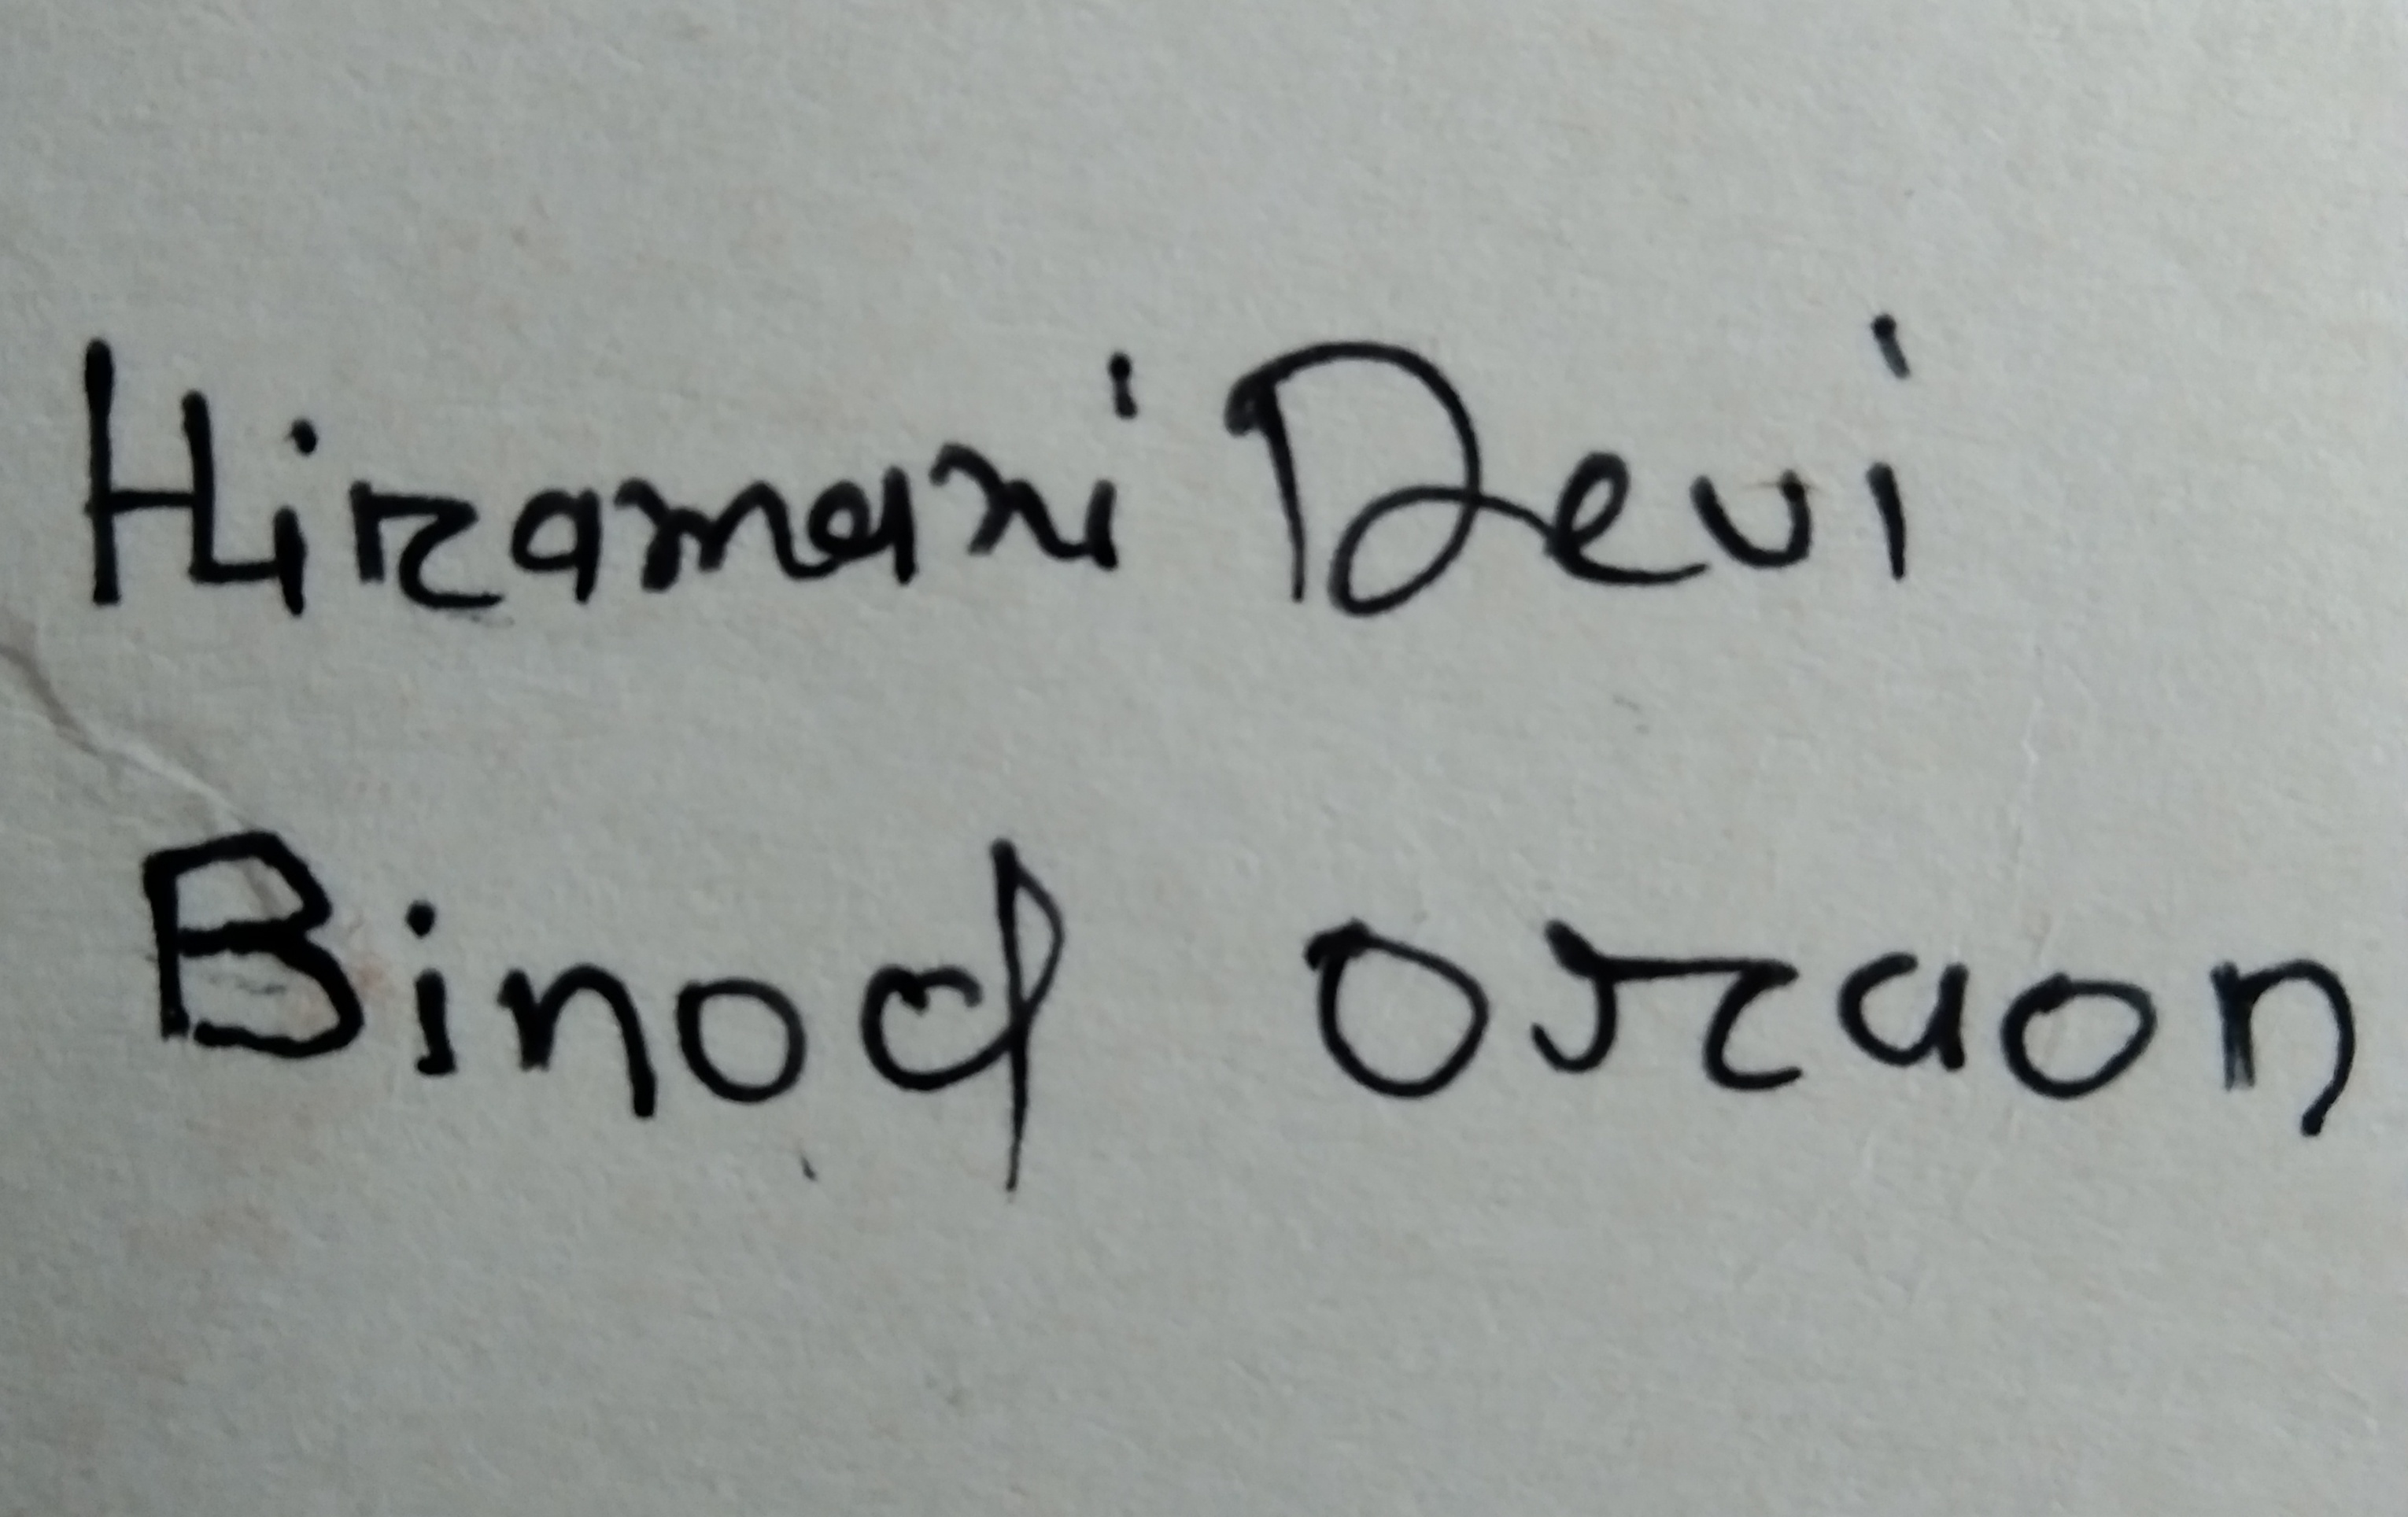 Hiramani Devi
Binod oraon